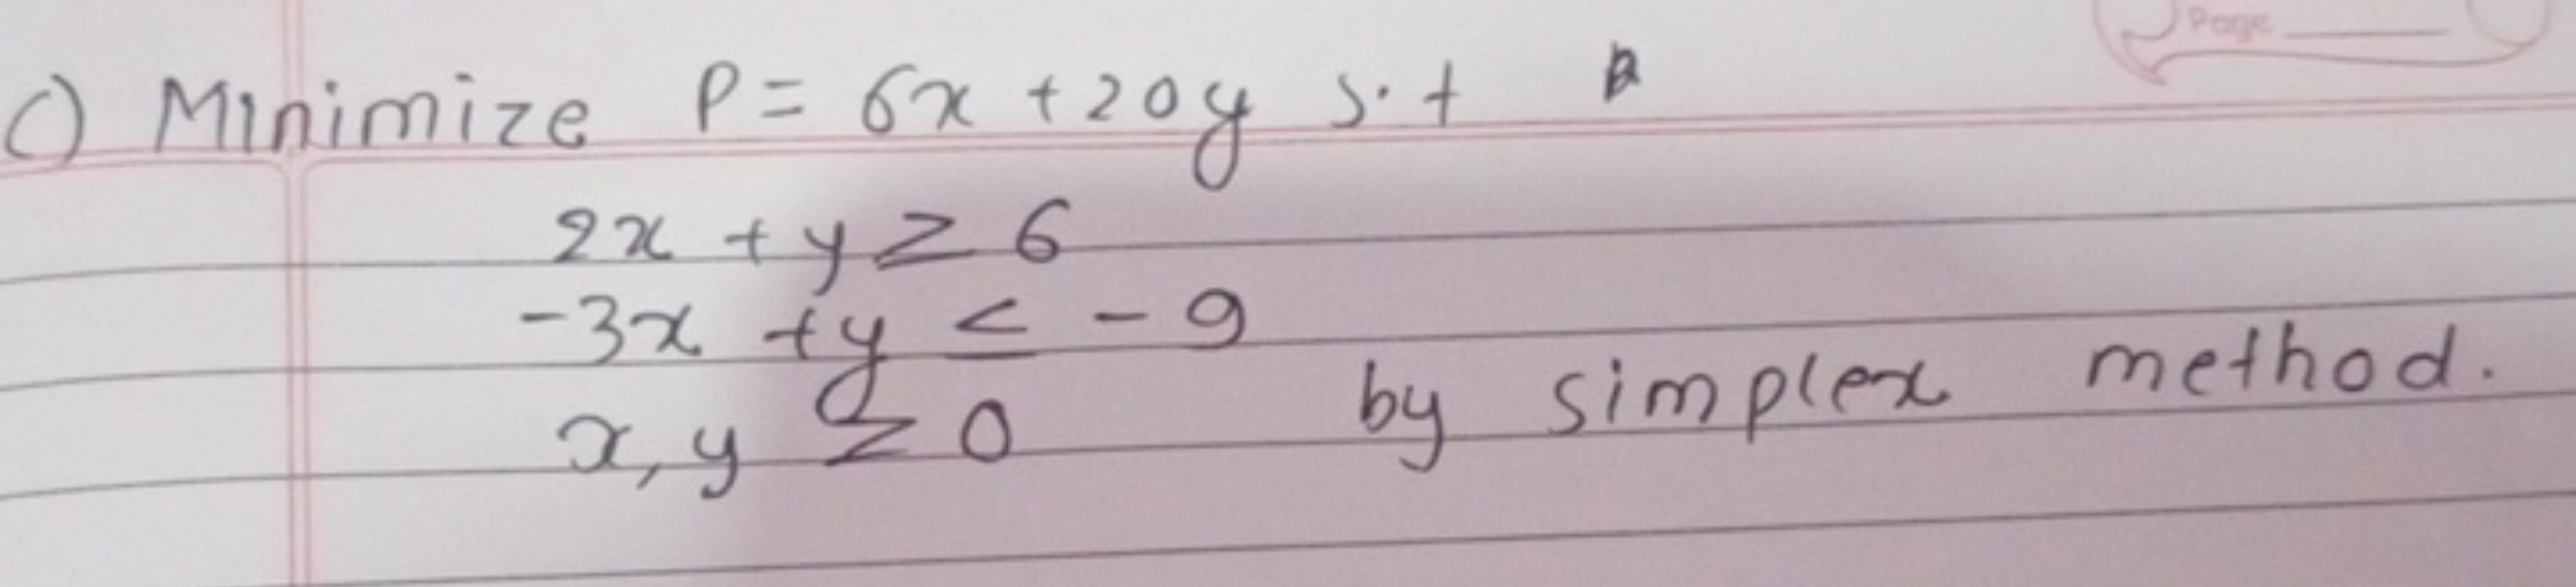 Page
c) Minimize P = 6x + 20y s.t
2x + y ≥ 6
-3x + y ≤ -9
x, y ≥ 0 by simplex method.